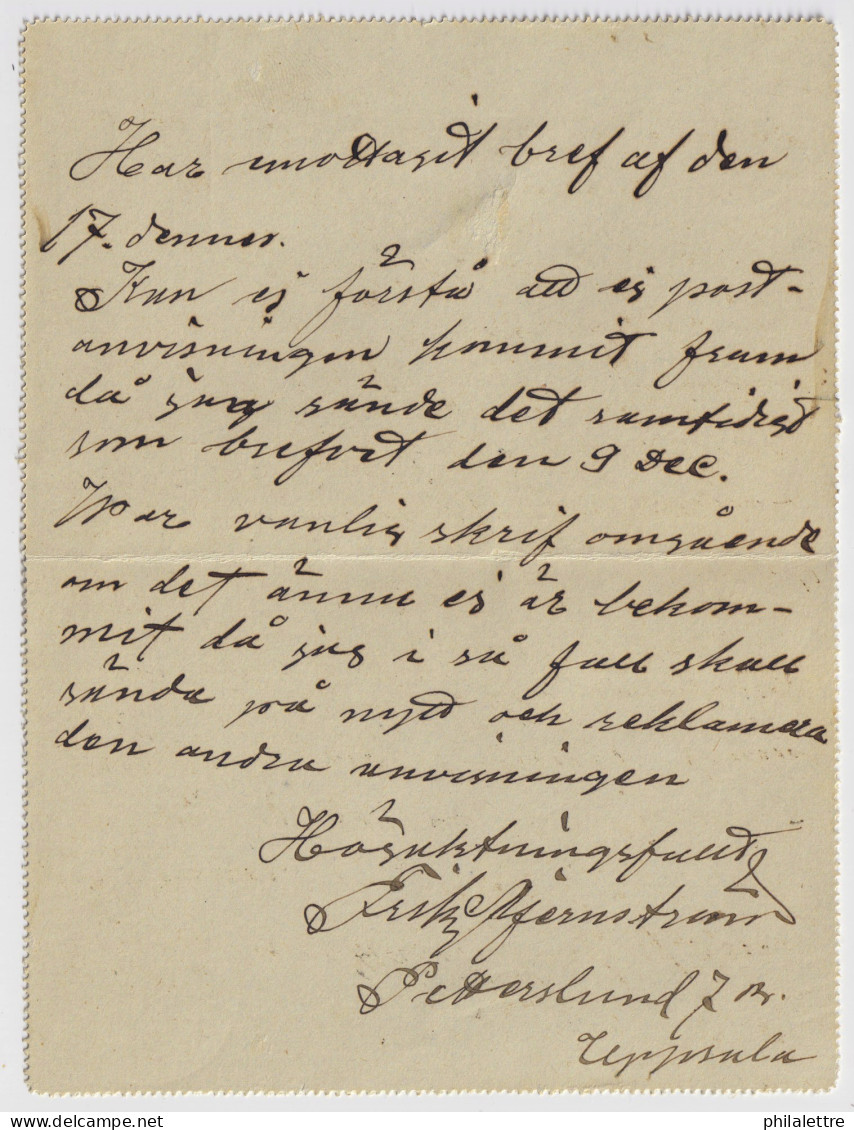 Har mottagit bref af den
17. dennes.
Kan ej förstå att ej post-
anvisningen kommit fram
då jag sände det samtidigt
som brefvet den 9 Dec.
War vanlig skrif omgående
om det ännu ej är bekom-
mit då jag i så fall skall
sända på nytt och reklamera
den andra anvisningen
Högaktningsfullt
Erik
Petterslund 7
Uppsala
philalettre